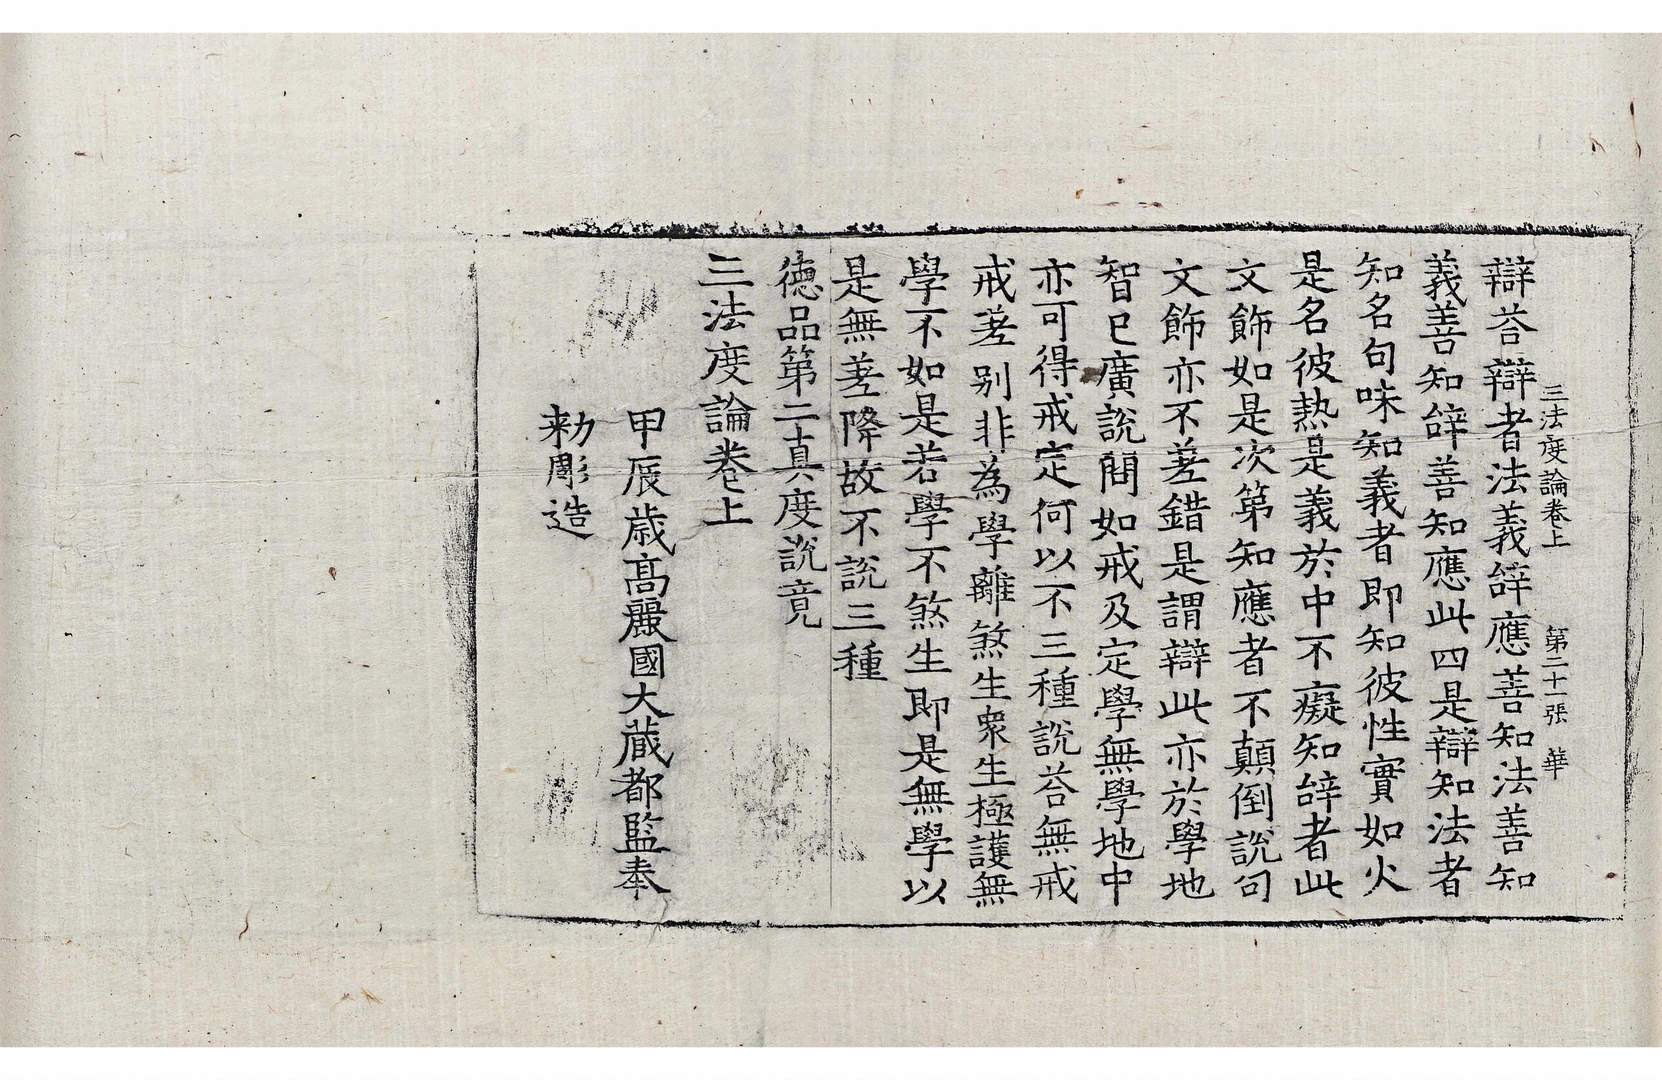 三法度論卷上 第二十一張 華
辯荅辯者法義辝應善知法善知
義善知辝善知應此四是辯知法者
知名句味知義者即知彼性實如火
是名彼熱是義於中不癡知辝者此
文飾如是次第知應者不顛倒說句
文飾亦不差錯是謂辯此亦於學地
智已廣說問如戒及定學無學地中
亦可得戒定何以不三種說荅無戒
戒差别非為學離煞生衆生極護無
學不如是若學不煞生即是無學以
是無差降故不說三種
德品第二真度說竟
三法度論卷上
甲辰歲高麗國大藏都監奉
勑彫造